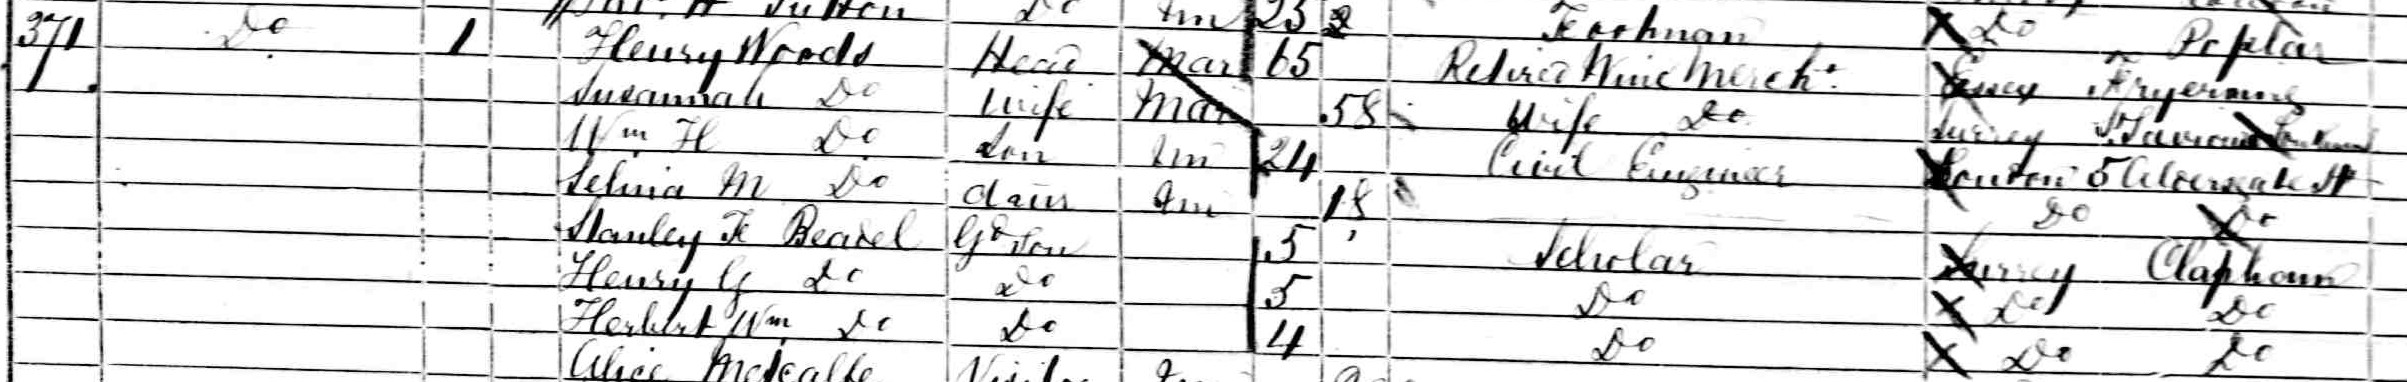 Sutton Do Un 23 Footman Do Poplar
371 Do 1 Henry Woods Head Mar 65 Retired Wine Mercht. Essex Fryerning
Susannah Do Wife Mar 58 Wife Do Surrey St Saviours
Wm H Do Son Un 24 Civil Engineer London 5 Aldersgate St
Selina M Do daur Un 18 Do Do
Stanley F Beadel Gd Son 5 Scholar Surrey Clapham
Henry G Do Do 5 Do Do Do
Herbert Wm Do Do 4 Do Do Do
Alice Metcalfe Visitor Un